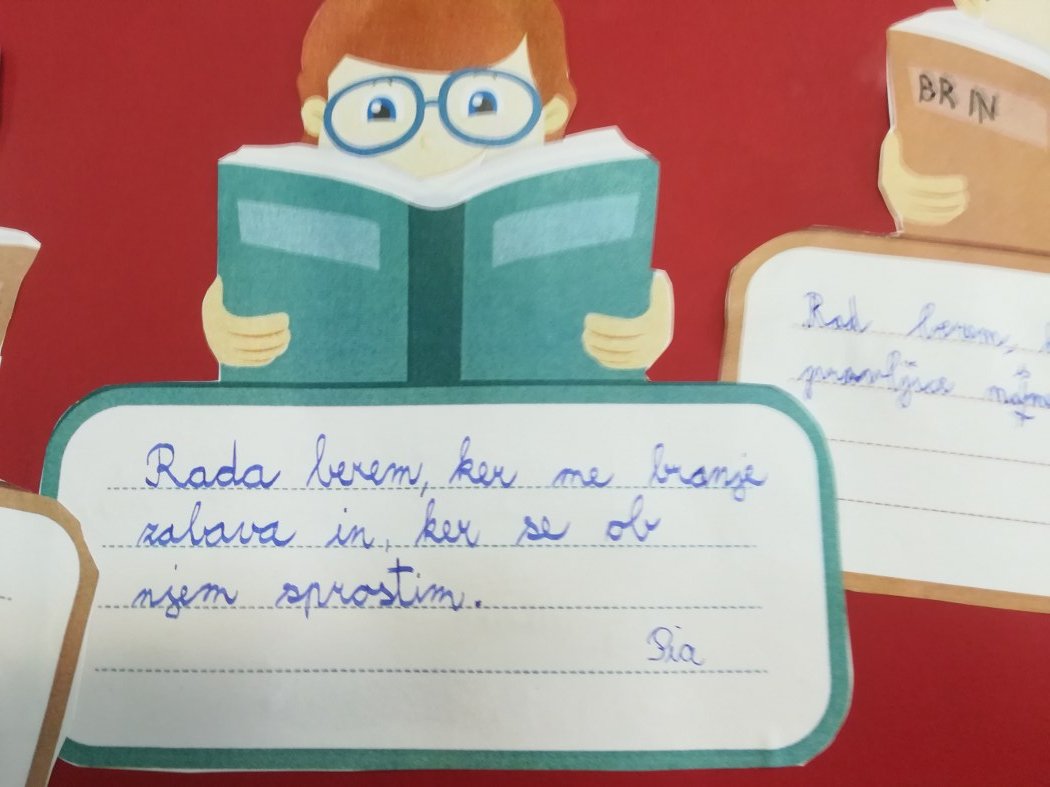 BRIN
Rada berem, ker me branje
zabava in, ker se ob
njem sprostim.
Pia
Rad berem,
pravljice